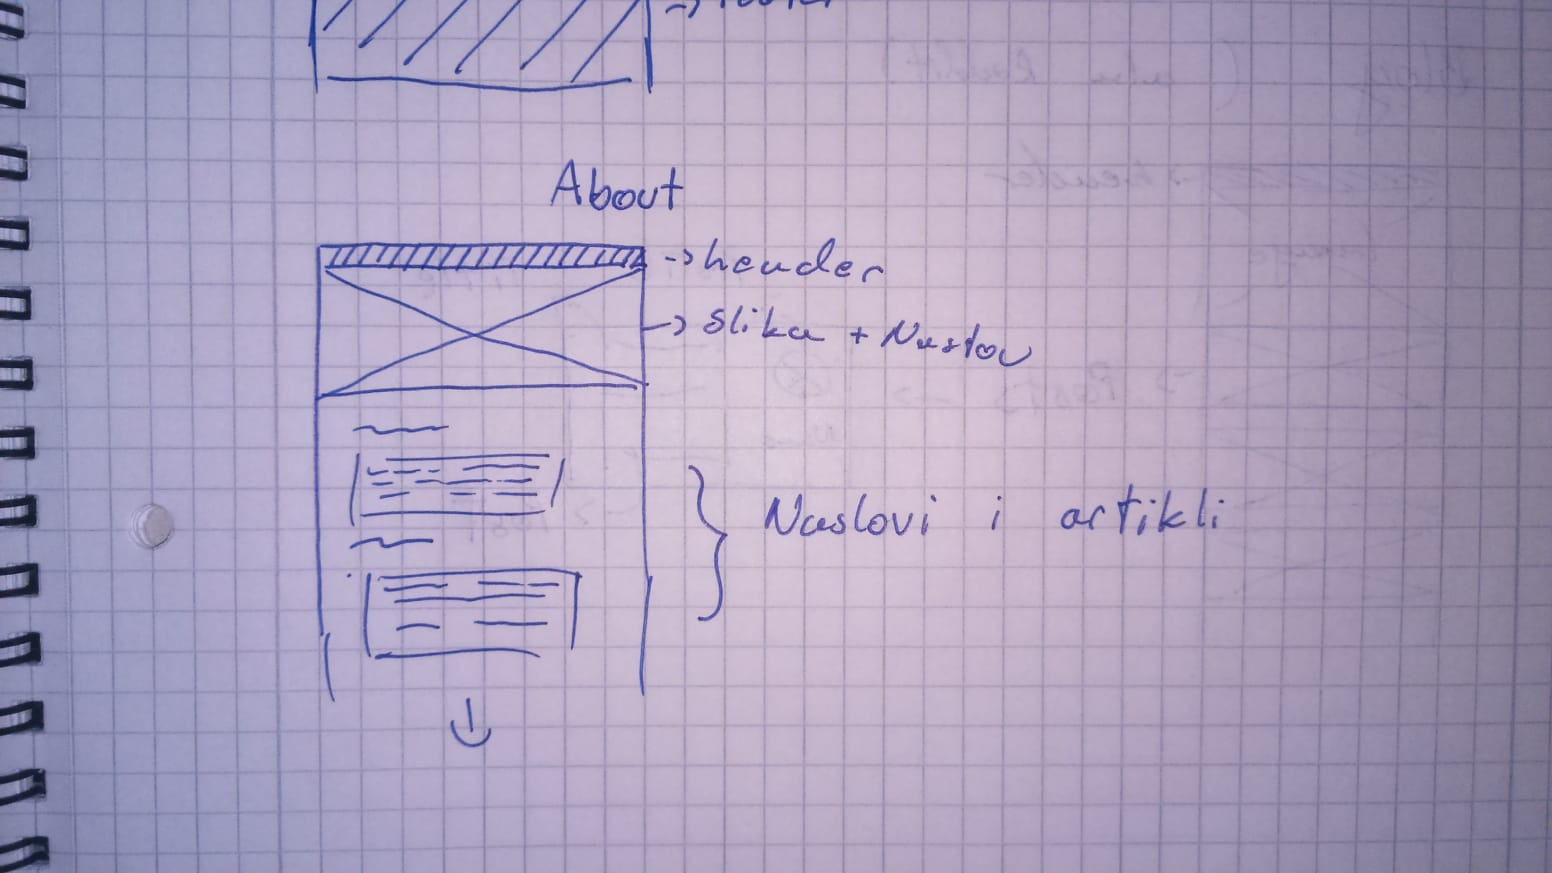 → footer
About
→ header
→ Slika + Naslov
Naslovi i artikli